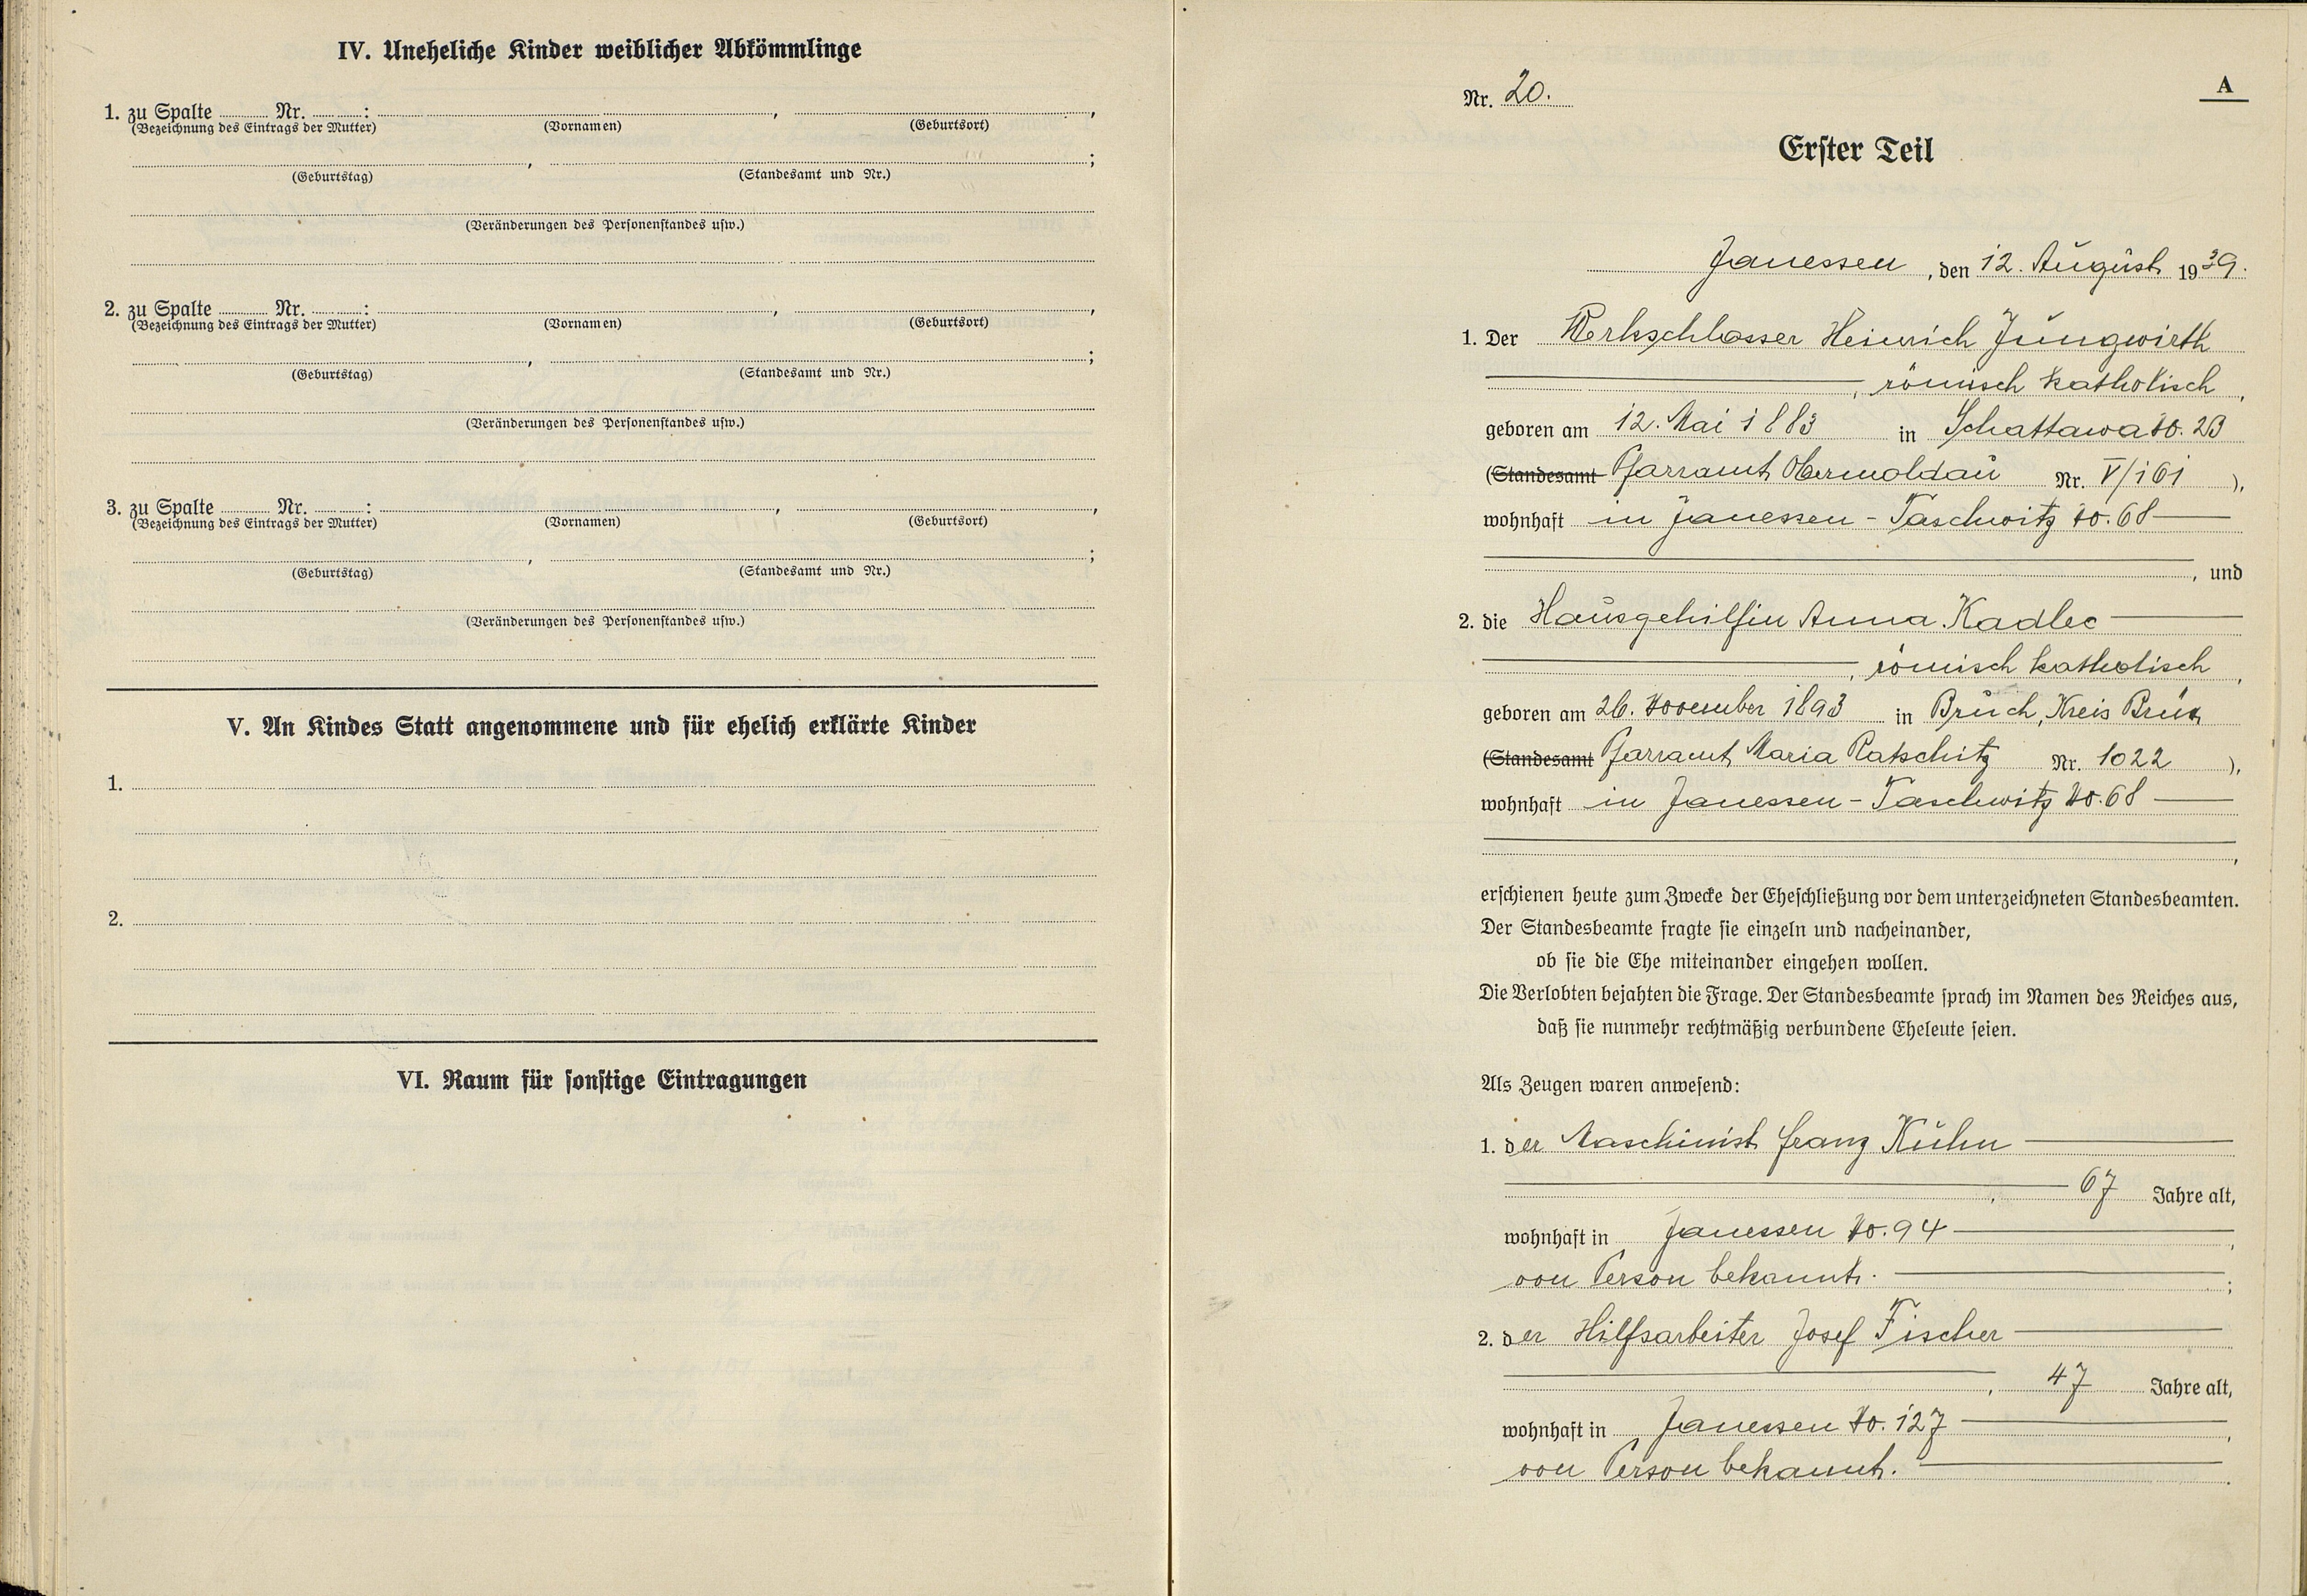 IV. Uneheliche Kinder weiblicher Abkömmlinge
1. zu Spalte ........ Nr. ........ : ........ , ........ ,
(Bezeichnung des Eintrags der Mutter) (Vornamen) (Geburtsort)
........ , ........ ;
(Geburtstag) (Standesamt und Nr.)
(Veränderungen des Personenstandes usw.)
2. zu Spalte ........ Nr. ........ : ........ , ........ ,
(Bezeichnung des Eintrags der Mutter) (Vornamen) (Geburtsort)
........ , ........ ;
(Geburtstag) (Standesamt und Nr.)
(Veränderungen des Personenstandes usw.)
3. zu Spalte ........ Nr. ........ : ........ , ........ ,
(Bezeichnung des Eintrags der Mutter) (Vornamen) (Geburtsort)
........ , ........ ;
(Geburtstag) (Standesamt und Nr.)
(Veränderungen des Personenstandes usw.)
V. An Kindes Statt angenommene und für ehelich erklärte Kinder
1.
2.
VI. Raum für sonstige Eintragungen
A
Nr. 20.
Erster Teil
Janessen, den 12. August 1939.
1. Der Werkschlosser Heinrich Jungwirth
, römisch katholisch,
geboren am 12. Mai 1883 in Schattawa No. 23
(Standesamt Pfarramt Obermoldau Nr. V/161 ),
wohnhaft in Janessen - Taschwitz No. 68
, und
2. die Hausgehilfin Anna Kadlec
, römisch katholisch,
geboren am 26. November 1893 in Bruch, Kreis Brüx
(Standesamt Pfarramt Maria Ratschitz Nr. 1022 ),
wohnhaft in Janessen - Taschwitz No. 68
,
erschienen heute zum Zwecke der Eheschließung vor dem unterzeichneten Standesbeamten.
Der Standesbeamte fragte sie einzeln und nacheinander,
ob sie die Ehe miteinander eingehen wollen.
Die Verlobten bejahten die Frage. Der Standesbeamte sprach im Namen des Reiches aus,
daß sie nunmehr rechtmäßig verbundene Eheleute seien.
Als Zeugen waren anwesend:
1. der Maschinist Franz Kühn
, 67 Jahre alt,
wohnhaft in Janessen No. 94 ,
von Person bekannt. ;
2. der Hilfsarbeiter Josef Fischer
, 47 Jahre alt,
wohnhaft in Janessen No. 127 ,
von Person bekannt. .